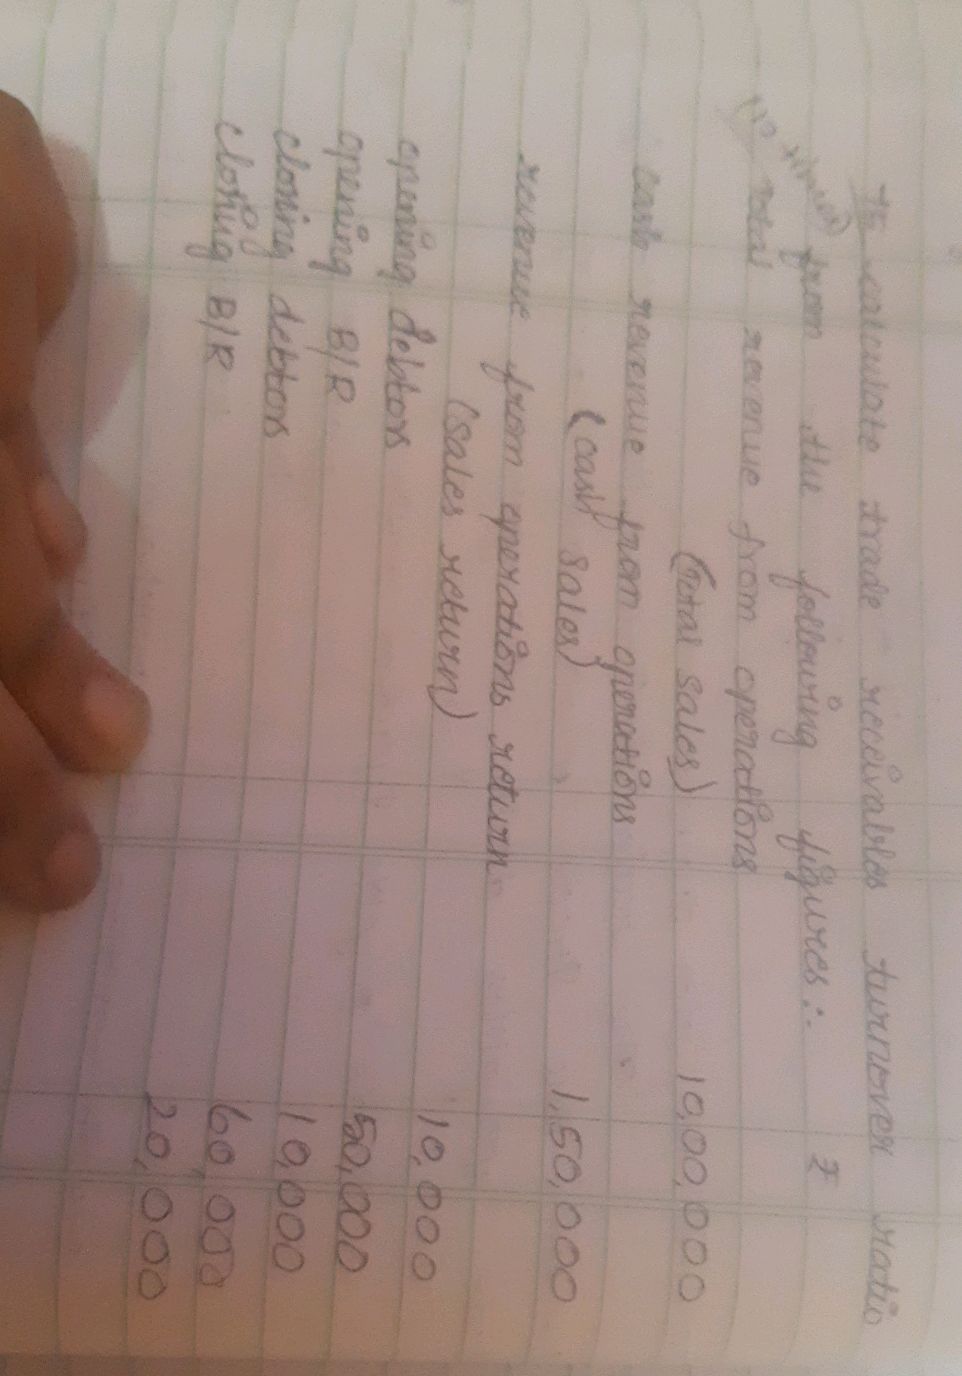 15 calculate trade receivables turnover ratio
from the following figures:- ₹
Total revenue from operations
(Total sales) 10,00,000
cash revenue from operations
(cash sales) 1,50,000
revenue from operations return
(sales return) 10,000
opening debtors 50,000
opening B/R 10,000
closing debtors 60,000
closing B/R 20,000